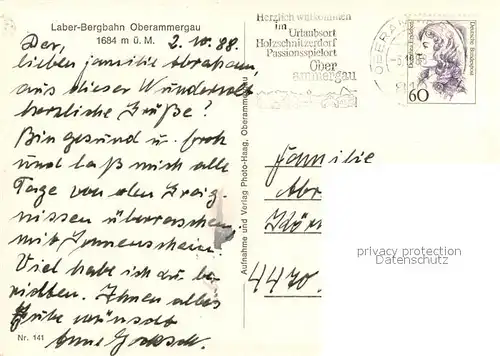 Laber-Bergbahn Oberammergau
1684 m ü. M.
2. 10. 88.
lieben Familie Abraham,
aus dieser Wunderwelt
herzliche Grüße!
Bin gesund u. froh
und laß mich alle
Tage von den Ereig-
nissen überraschen,
mit Sonnenschein.
Viel habe ich zu be-
richten. Ihnen alles
Gute wünscht
Anne
Nr. 141
Aufnahme und Verlag Photo-Haag, Oberammergau
Herzlich willkommen
im
Urlaubsort
Holzschnitzerdorf
Passionsspielort
Ober
ammergau
Deutsche Bundespost
60
Familie
Abr
4470
privacy protection
Datenschutz